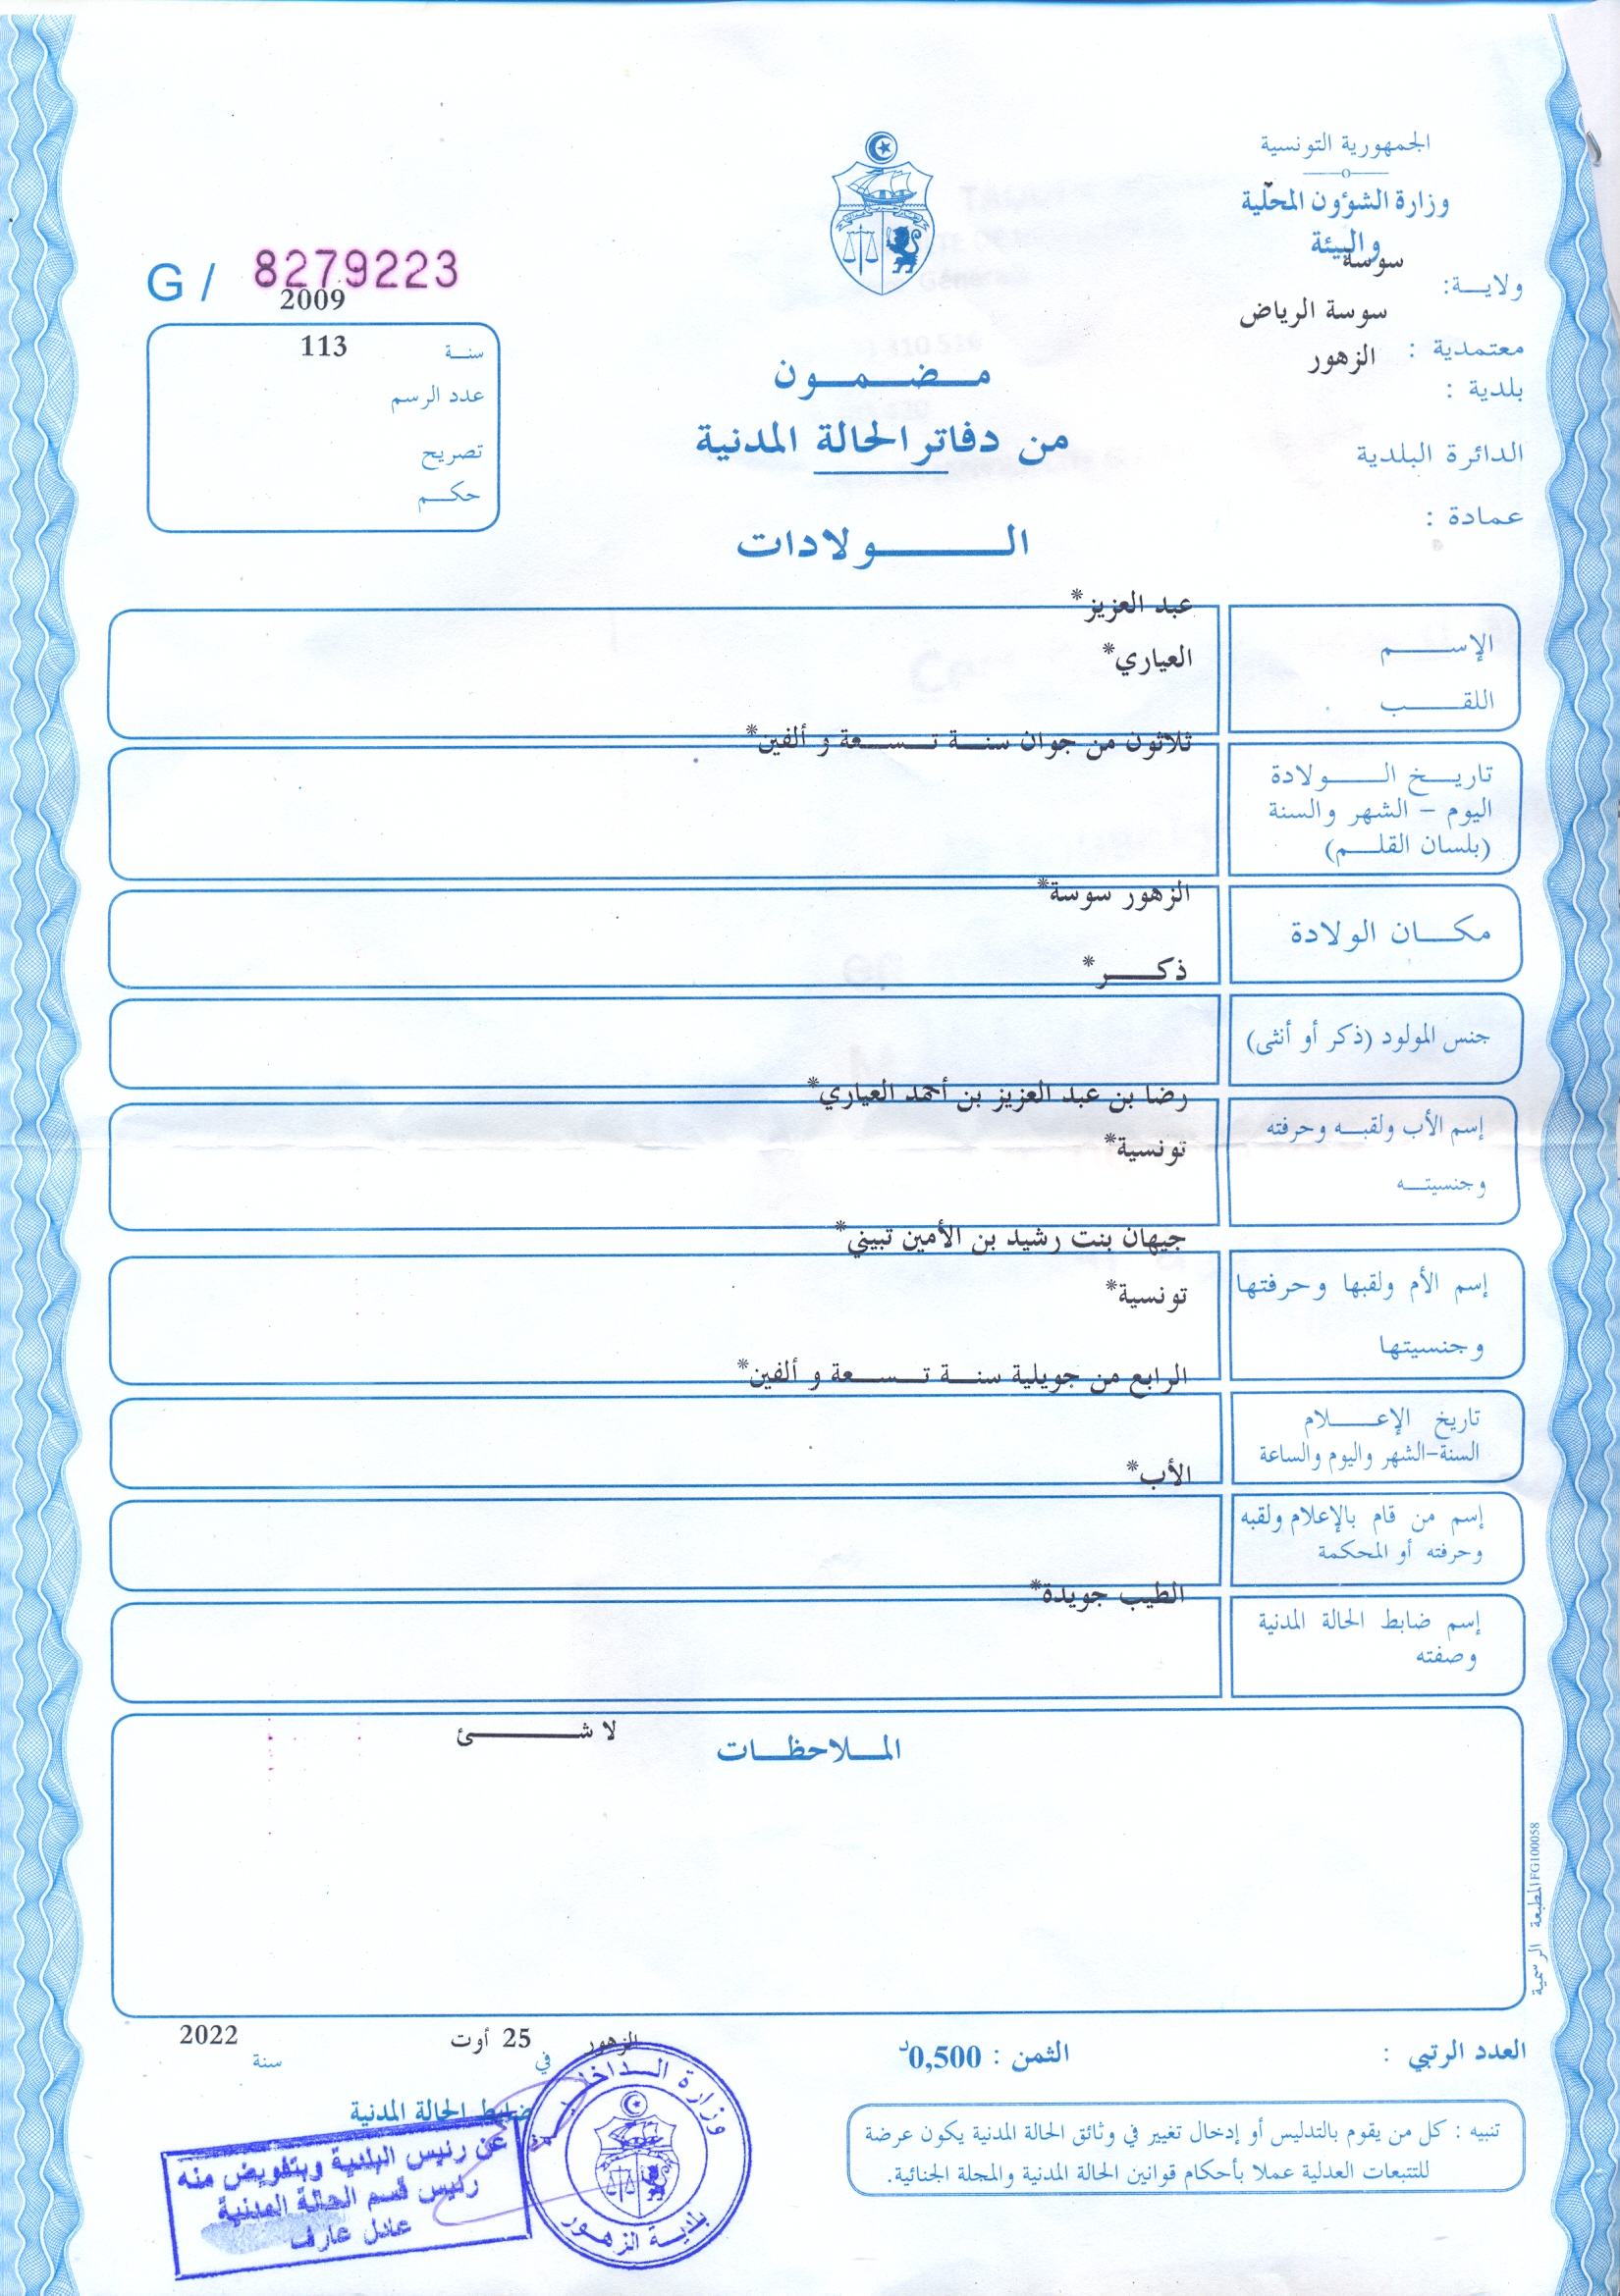 الجمهورية التونسية
وزارة الشؤون المحلّية
والبيئة
ولايـــة: سوسة
معتمدية : سوسة الرياض
بلدية : الزهور
الدائرة البلدية
عمادة :
G / 8279223
سنـــة 2009
عدد الرسم 113
تصريح
حكـــم
مــضــمــون
من دفاتر الحالة المدنية
الــــــولادات
الإســــــم عبد العزيز*
اللقــــــب العياري*
تاريـــخ الـــــولادة ثلاثون من جوان سنـــة تـــســـعة و ألفين*
اليوم – الشهر والسنة
(بلسان القلـــم)
مكـــان الولادة الزهور سوسة*
جنس المولود (ذكر أو أنثى) ذكـــــر*
إسم الأب ولقبــه وحرفته رضا بن عبد العزيز بن أحمد العياري*
وجنسيتـــه تونسية*
إسم الأم ولقبها وحرفتها جيهان بنت رشيد بن الأمين تبيني*
وجنسيتها تونسية*
تاريخ الإعــــلام الرابع من جويلية سنـــة تـــســـعة و ألفين*
السنة-الشهر واليوم والساعة
إسم من قام بالإعلام ولقبه الأب*
وحرفته أو المحكمة
إسم ضابط الحالة المدنية الطيب جويدة*
وصفته
المــلاحظــات
لا شـــــــــئ
المطبعة الرسمية FG100058
العدد الرتبي :
الثمن : 0,500د
الزهور في 25 أوت سنة 2022
ضابط الحالة المدنية
تنبيه : كل من يقوم بالتدليس أو إدخال تغيير في وثائق الحالة المدنية يكون عرضة
للتتبعات العدلية عملا بأحكام قوانين الحالة المدنية والمجلة الجنائية.
وزارة الـداخلـيـة
بلديـة الزهـور
عن رئيس البلدية وبتفويض منه
رئيس قسم الحالة المدنية
عادل عارف